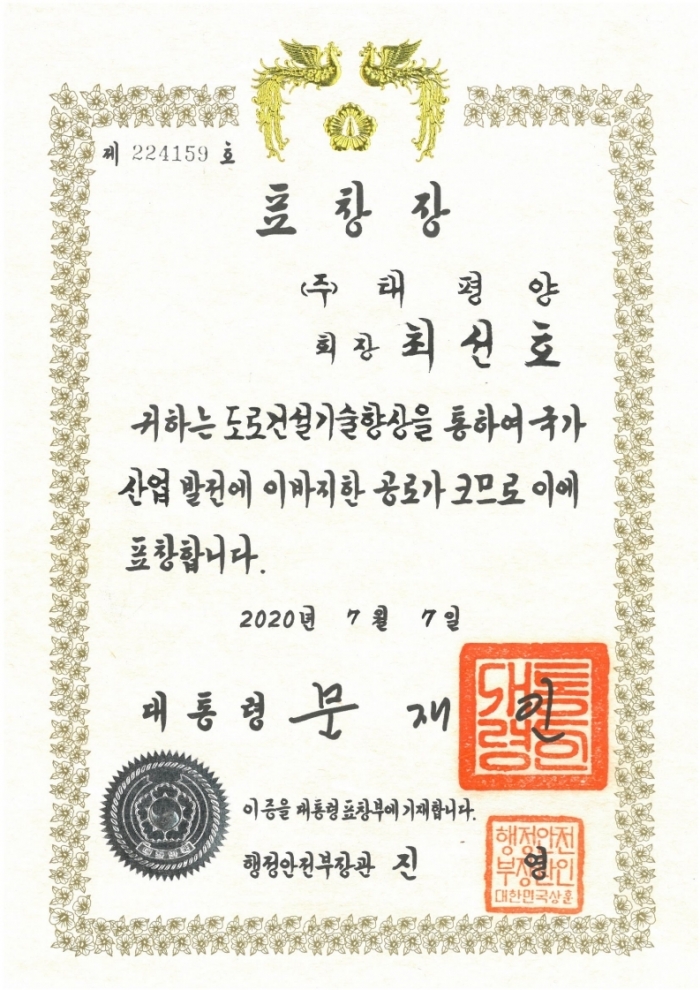 제 224159 호
표창장
(주) 태평양
회장 최신호
귀하는 도로건설기술향상을 통하여 국가
산업 발전에 이바지한 공로가 크므로 이에
표창합니다.
2020년 7월 7일
대통령 문재인
대통령인
이 증을 대통령표창부에 기재합니다.
행정안전부장관 진영
행정안전
부장관인
대한민국상훈